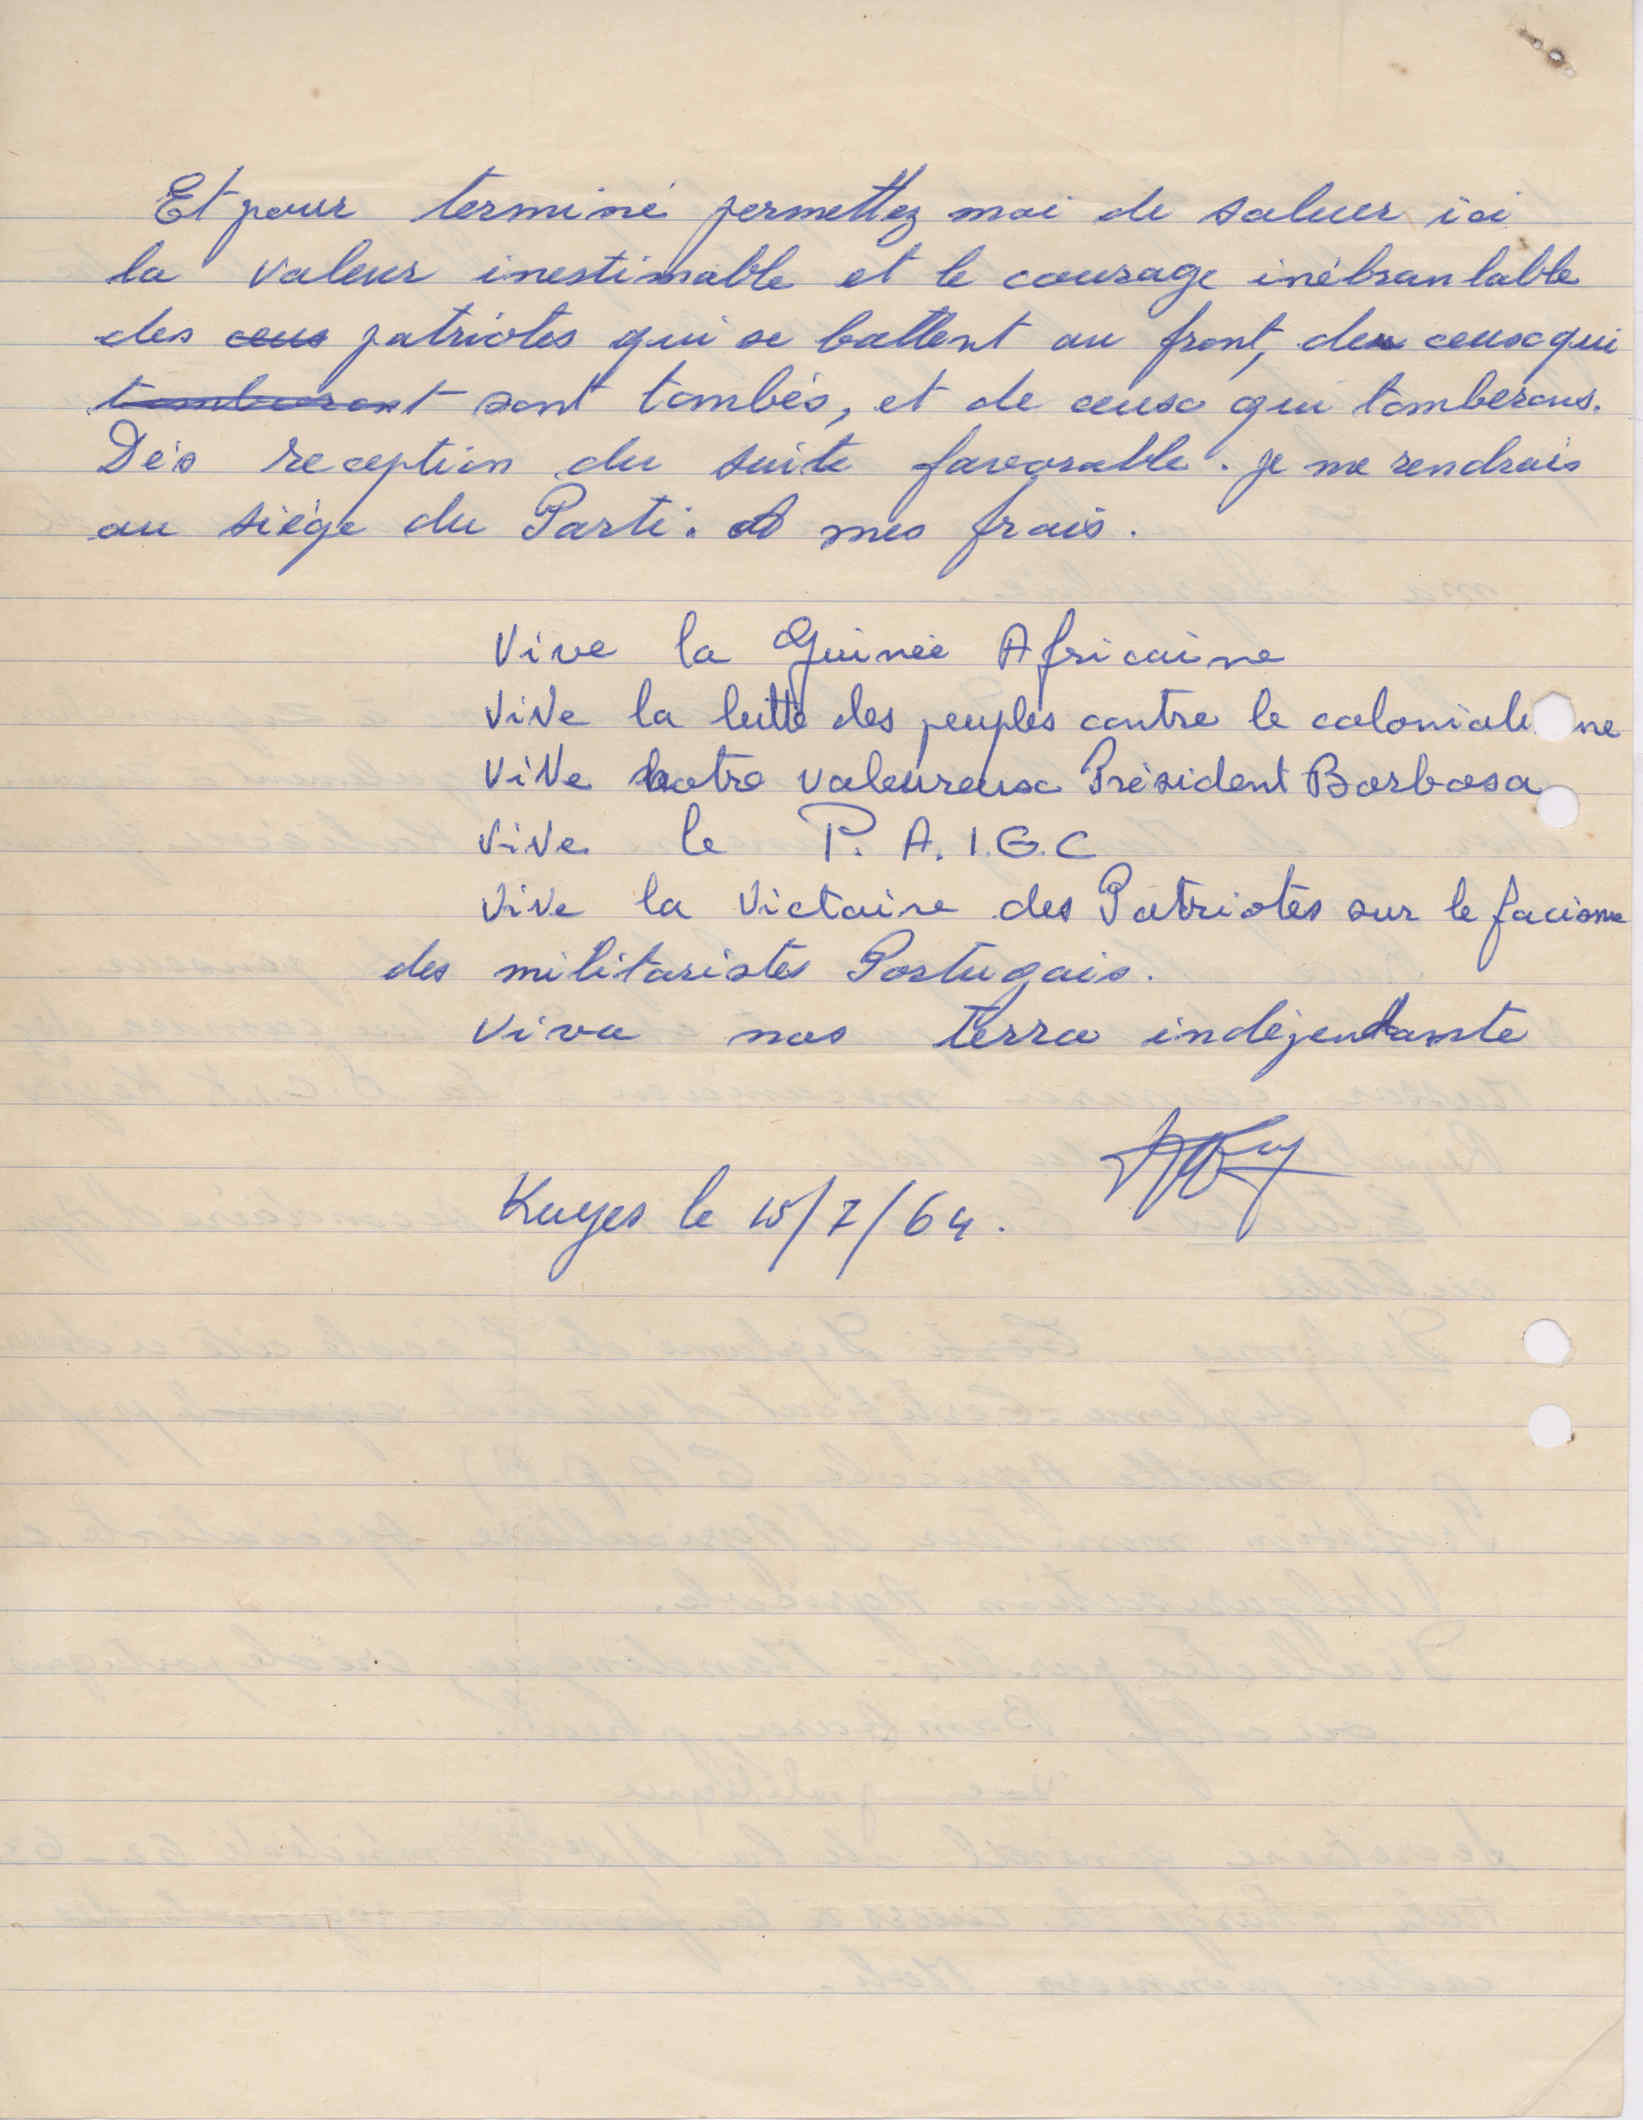 Et pour terminé permettez moi de saluer ici
la valeur inestimable et le courage inébranlable
des ceus patriotes qui se battent au front, de ceux qui
tomberont sont tombés, et de ceux qui tomberons.
Dés reception du suite favorable. je me rendrais
au siége du Parti. A mes frais.
Vive la Guinée Africaine
ViVe la lutte des peuples contre le colonial
ViVe notre valeureux Président Barbosa
ViVe le P. A. I. G. C
ViVe la Victoire des Patriotes sur le facisme
des militaristes Portugais.
Viva nos terra indépendante
Kayes le 15/7/64.